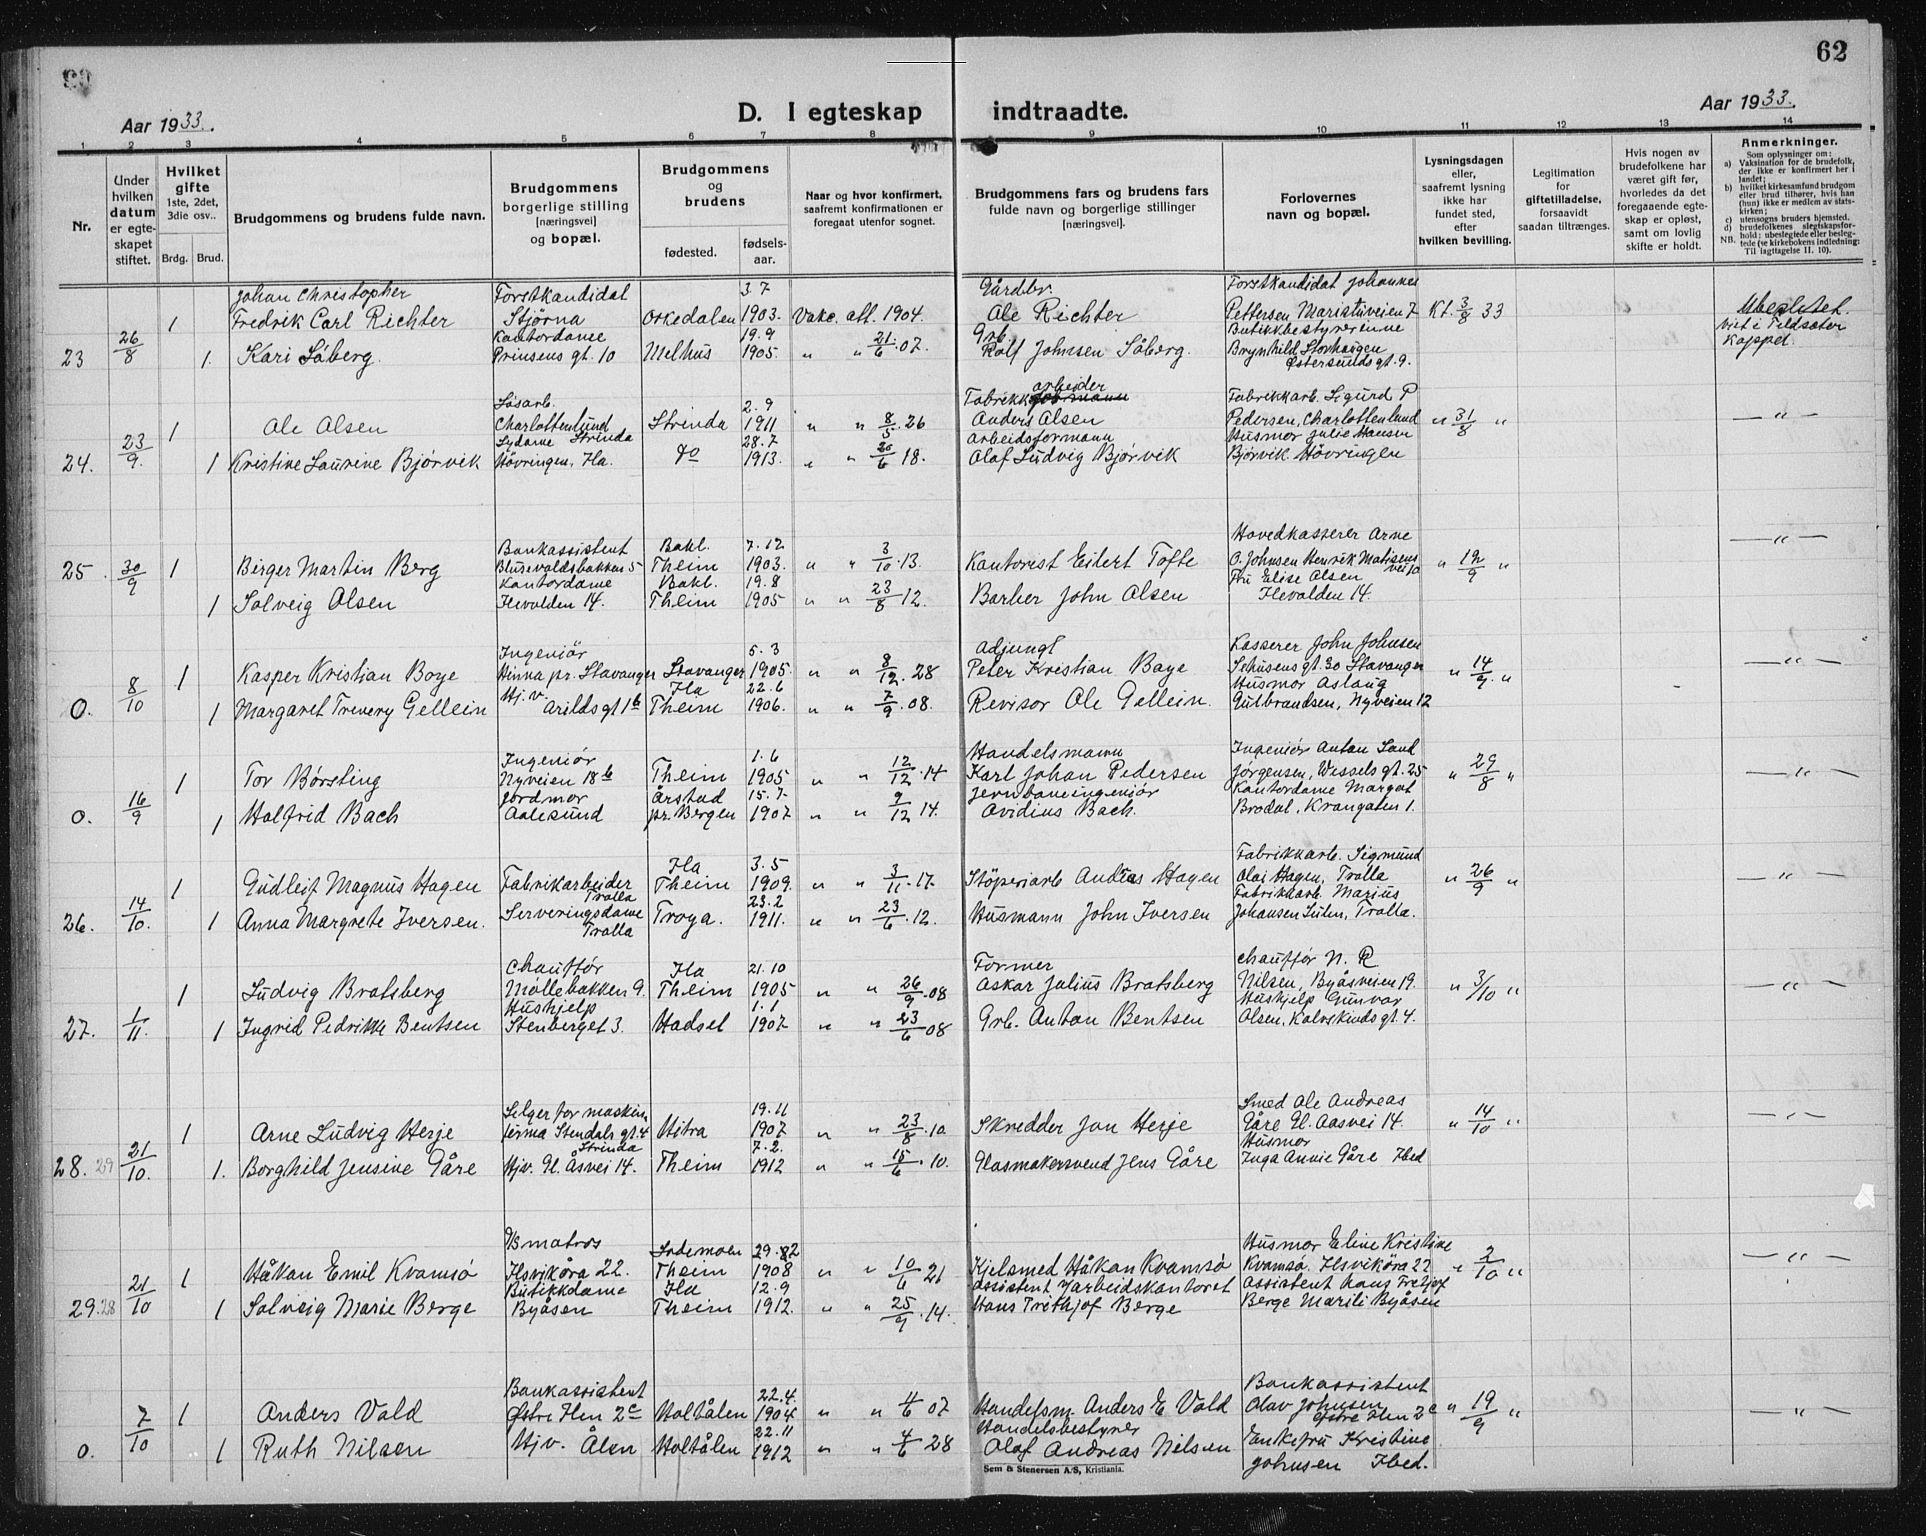 62
Aar 1933.
D. I egteskap indtraadte.
Aar 1933.
1 2 3 4 5 6 7 8 9 10 11 12 13 14
Nr.
Under hvilken datum er egteskapet stiftet.
Hvilket gifte 1ste, 2det, 3die osv..
Brdg. Brud.
Brudgommens og brudens fulde navn.
Brudgommens borgerlige stilling [næringsvei] og bopæl.
Brudgommens og brudens
fødested. fødselsaar.
Naar og hvor konfirmert, saafremt konfirmationen er foregaat utenfor sognet.
Brudgommens fars og brudens fars fulde navn og borgerlige stillinger [næringsvei].
Forlovernes navn og bopæl.
Lysningsdagen eller, saafremt lysning ikke har fundet sted, efter hvilken bevilling.
Legitimation for giftetilladelse, forsaavidt saadan tiltrænges.
Hvis nogen av brudefolkene har været gift før, hvorledes da det foregaaende egteskap er opløst, samt om lovlig skifte er holdt.
Anmerkninger.
Som oplysninger om:
a) Vaksination for de brudefolk, der ikke er konfirmert her i landet;
b) hvilket kirkesamfund brudgom eller brud tilhører, hvis han (hun) ikke er medlem av statskirken;
c) utensogns bruders hjemsted.
d) brudefolkenes slegtskapsforhold: ubeslegtede eller beslegtede (se kirkebokens indledning:
NB. Til Iagttagelse II. 10).
Johan Christopher Forstkandidat 3.7 Gårdbr. Forstkandidat Johannes
1 Fredrik Carl Richter Stjørna Orkedalen 1903. Vakc. att. 1904. Ole Richter Pettersen Maristuveien 7 Kl. 3/8 33 Ubeslutet.
26/8 Kontordame 19.9 Grb. Butikkbestyrerinne viet i Tildseter
23 1 Kari Såberg. Prinsens gt. 10 Melhus 1905 " " 21/6.07. Rolf Johnsen Såberg. Brynhild Storhaugen kappel.
Østersundsgt. 9.
Løsarb. 2.9 Fabrikkarbeider Fabrikkarb. Sigurd P
1 Ole Olsen Charlottenlund Strinda 1911 " " 8/5.26 Anders Olsen Pedersen, Charlottenlund " 31/8 " — " —
23/9. Sydame Strinda 28.7 Arbeidsformann Husmor Julie Hansen
24. 1 Kristine Laurine Bjørvik Høvringen, Ila. do 1913. " " 20/6 18. Olaf Ludvig Bjørvik Bjørvik Høvringen
Bankassistent Bakl. 7.12 Hovedkasserer Arne — " —
25. 30/9 1 Birger Martin Berg Blusevoldsbakken 5 Theim 1903. " " 3/10.13. Kantorist Eilert Tofte O. Johnsen Henrik Matisens vei 10 " 12/9 "
Kontordame Bakl. 19.8 Fru Elise Olsen
1 Solveig Olsen Ilevolden 14. Theim 1905 " " 23/8 12. Barber John Olsen Ilevolden 14.
Ingeniør 5.3 Adjunkt Kasserer John Johnsen
1 Kasper Kristian Boye Hinna pr. Stavanger Stavanger 1905. " " 8/12.28 Peter Kristian Boye Sehusensgt. 30 Stavanger " 14/9. " — " —
8/10 Hj.v. Ila 22.6 Husmor Aslaug
0. 1 Margaret Trevery Gellein Arildsgt 1b Theim 1906. " " 7/9.08. Revisor Ole Gellein. Gulbrandsen, Nyveien 12
Ingeniør 1.6 Handelsmann Ingeniør Anton Sand
1 Tor Børsting Nyveien 18b Theim 1905 " " 12/12.14 Karl Johan Pedersen Jørgensen, Wessels gt. 25 " 29/8 " — " —
16/9 Jordmor Årstad 15.7. Jernbaneingeniør Kontordame Margot
0. 1 Halfrid Bach Aalesund pr. Bergen 1907 " " 9/12 14. Ovidius Bach. Brodal, Krangaten 1.
Ila 3.5 Fabrikkarb. Sigmund
1 Gudleif Magnus Hagen Fabrikarbeider Theim 1909. " " 3/11.17. Støperiarb Andreas Hagen Olai Hagen, Trolla " 26/9 " — " —
14/10. Trolla 23.2 Fabrikkarb. Marius
26. 1 Anna Margrete Iversen. Serveringsdame Troya. 1911. " " 23/6.12. Husmann John Iversen Johansen Sulen, Trolla.
Trolla
Chauffør Ila 21.10 Former chauffør N. R
1 Ludvig Bratsberg Møllebakken 9. Theim 1905 " " 26/9.08 Oskar Julius Bratsberg Nilsen, Byåsveien 19. " 3/10 " — " —
1/11. Hushjelp 1.1 Hushjelp Gunvor
27. 1 Ingrid Pedrikke Bentsen Stenberget 3. Hadsel 1907 " " 23/6 08 Grb. Anton Bentsen Olsen, Kalvskindsgt. 4.
Selger for maskin 19.11 Smed Ole Andreas
1 Arne Ludvig Herje firma Stendals gt. 4 Hitra 1907 " " 23/8.10 Skredder Jon Herje Gåre Gl. Aasvei 14. " 14/10 " — " —
21/10. Strinda 7.2. Husmor
28. 29 1. Borghild Jensine Gåre Hjv. Gl. Åsvei 14. Theim 1912 " " 15/6.10. Glasmakersvend Jens Gåre Inga Annie Gåre Ibed
D/S matros Lademoen 29.82 Husmor Eline Kristine
1 Håkon Emil Kvamsø Ilsvikøra 22. Theim 1908 " " 10/6 21 Kjelsmed Håkon Kvamsø Kvamsø. Ilsvikøra 22 " 2/10 " — " —
21/10 Butikkdame Ila 12.9 Assistent v/arbeidskontoret Assistent Hans Tretjof
29. 28 1 Solveig Marie Berge Byåsen Theim 1912. " " 25/9.14. Hans Trethjof Berge Berge Marili Byåsen
Bankassistent 22.4. Bankassistent
1 Anders Vold Østre Ilen 2c Holtålen 1904 " " 4/6 07 Handelsm. Anders E Vold Olav Johnsen Østre Ilen 2c " 19/9 " — " —
7/10 22.11 Handelsbestyrer
0. 1 Ruth Nilsen Hjv. Ålen Holtålen 1912 " " 4/6 28 Olaf Andreas Nilsen Enkefru Kristine
Johnsen Ibed.
Sem & Stenersen A/S, Kristiania.